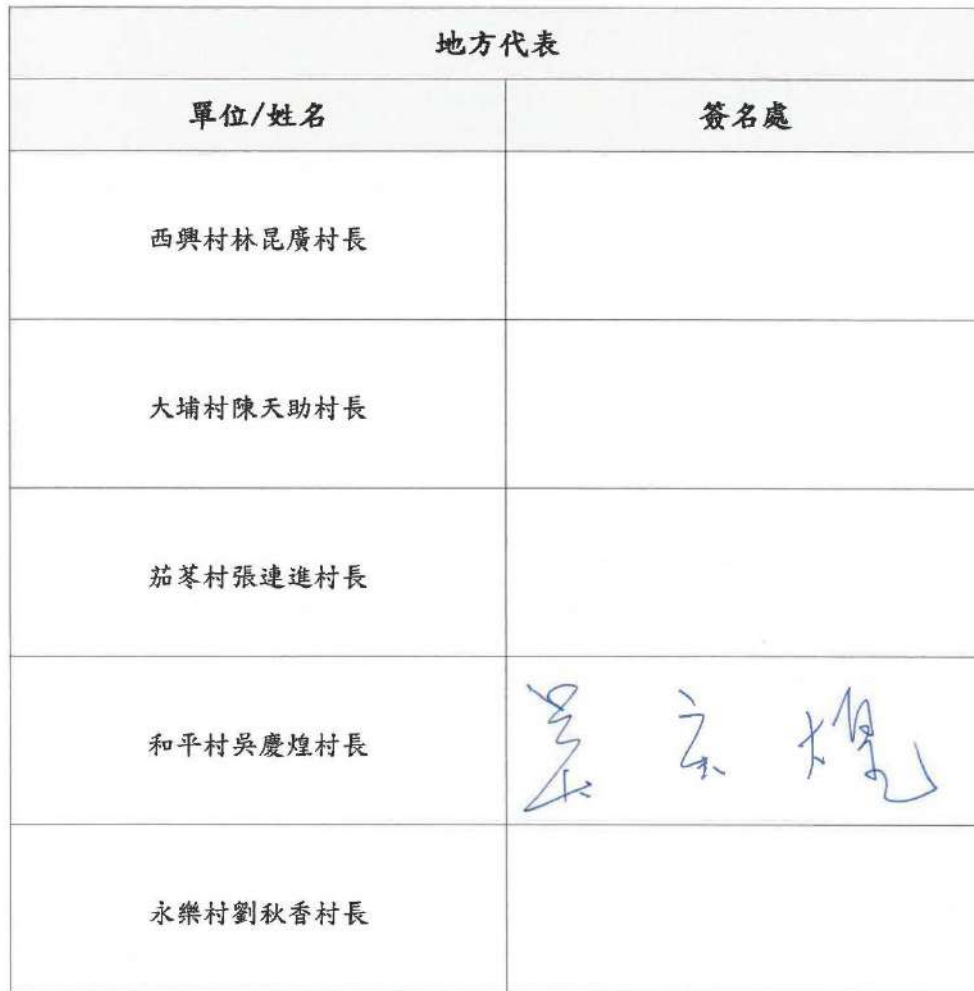 地方代表
單位/姓名 簽名處
西興村林昆廣村長
大埔村陳天助村長
茄苳村張連進村長
和平村吳慶煌村長 吳慶煌
永樂村劉秋香村長